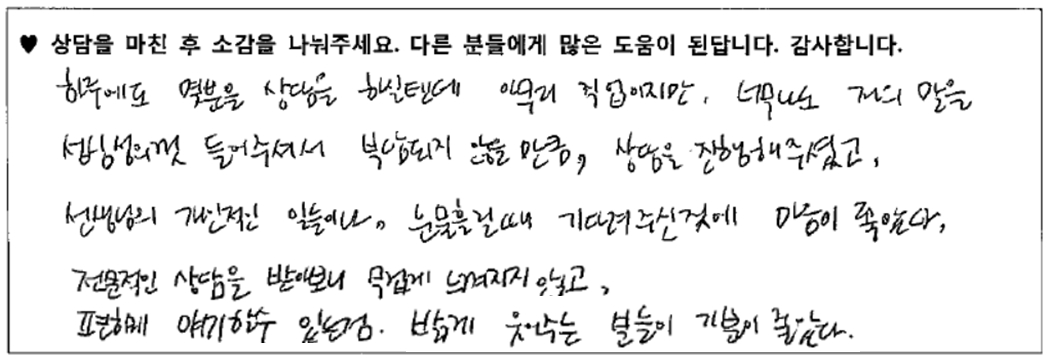 ♥ 상담을 마친 후 소감을 나눠주세요. 다른 분들에게 많은 도움이 된답니다. 감사합니다.
하루에도 몇분을 상담을 하실텐데 아무리 직업이지만, 너무나도 저의 말을
성심성의껏 들어주셔서 부담되지 않을 만큼, 상담을 진행해주셨고,
선생님의 개인적인 일들이나, 눈물흘릴때 기다려주신것에 마음이 좋았다,
전문적인 상담을 받아보니 무겁게 느껴지지 않고,
편하게 얘기할수 있는점. 밝게 웃어주는 분들이 기분이 좋았다.